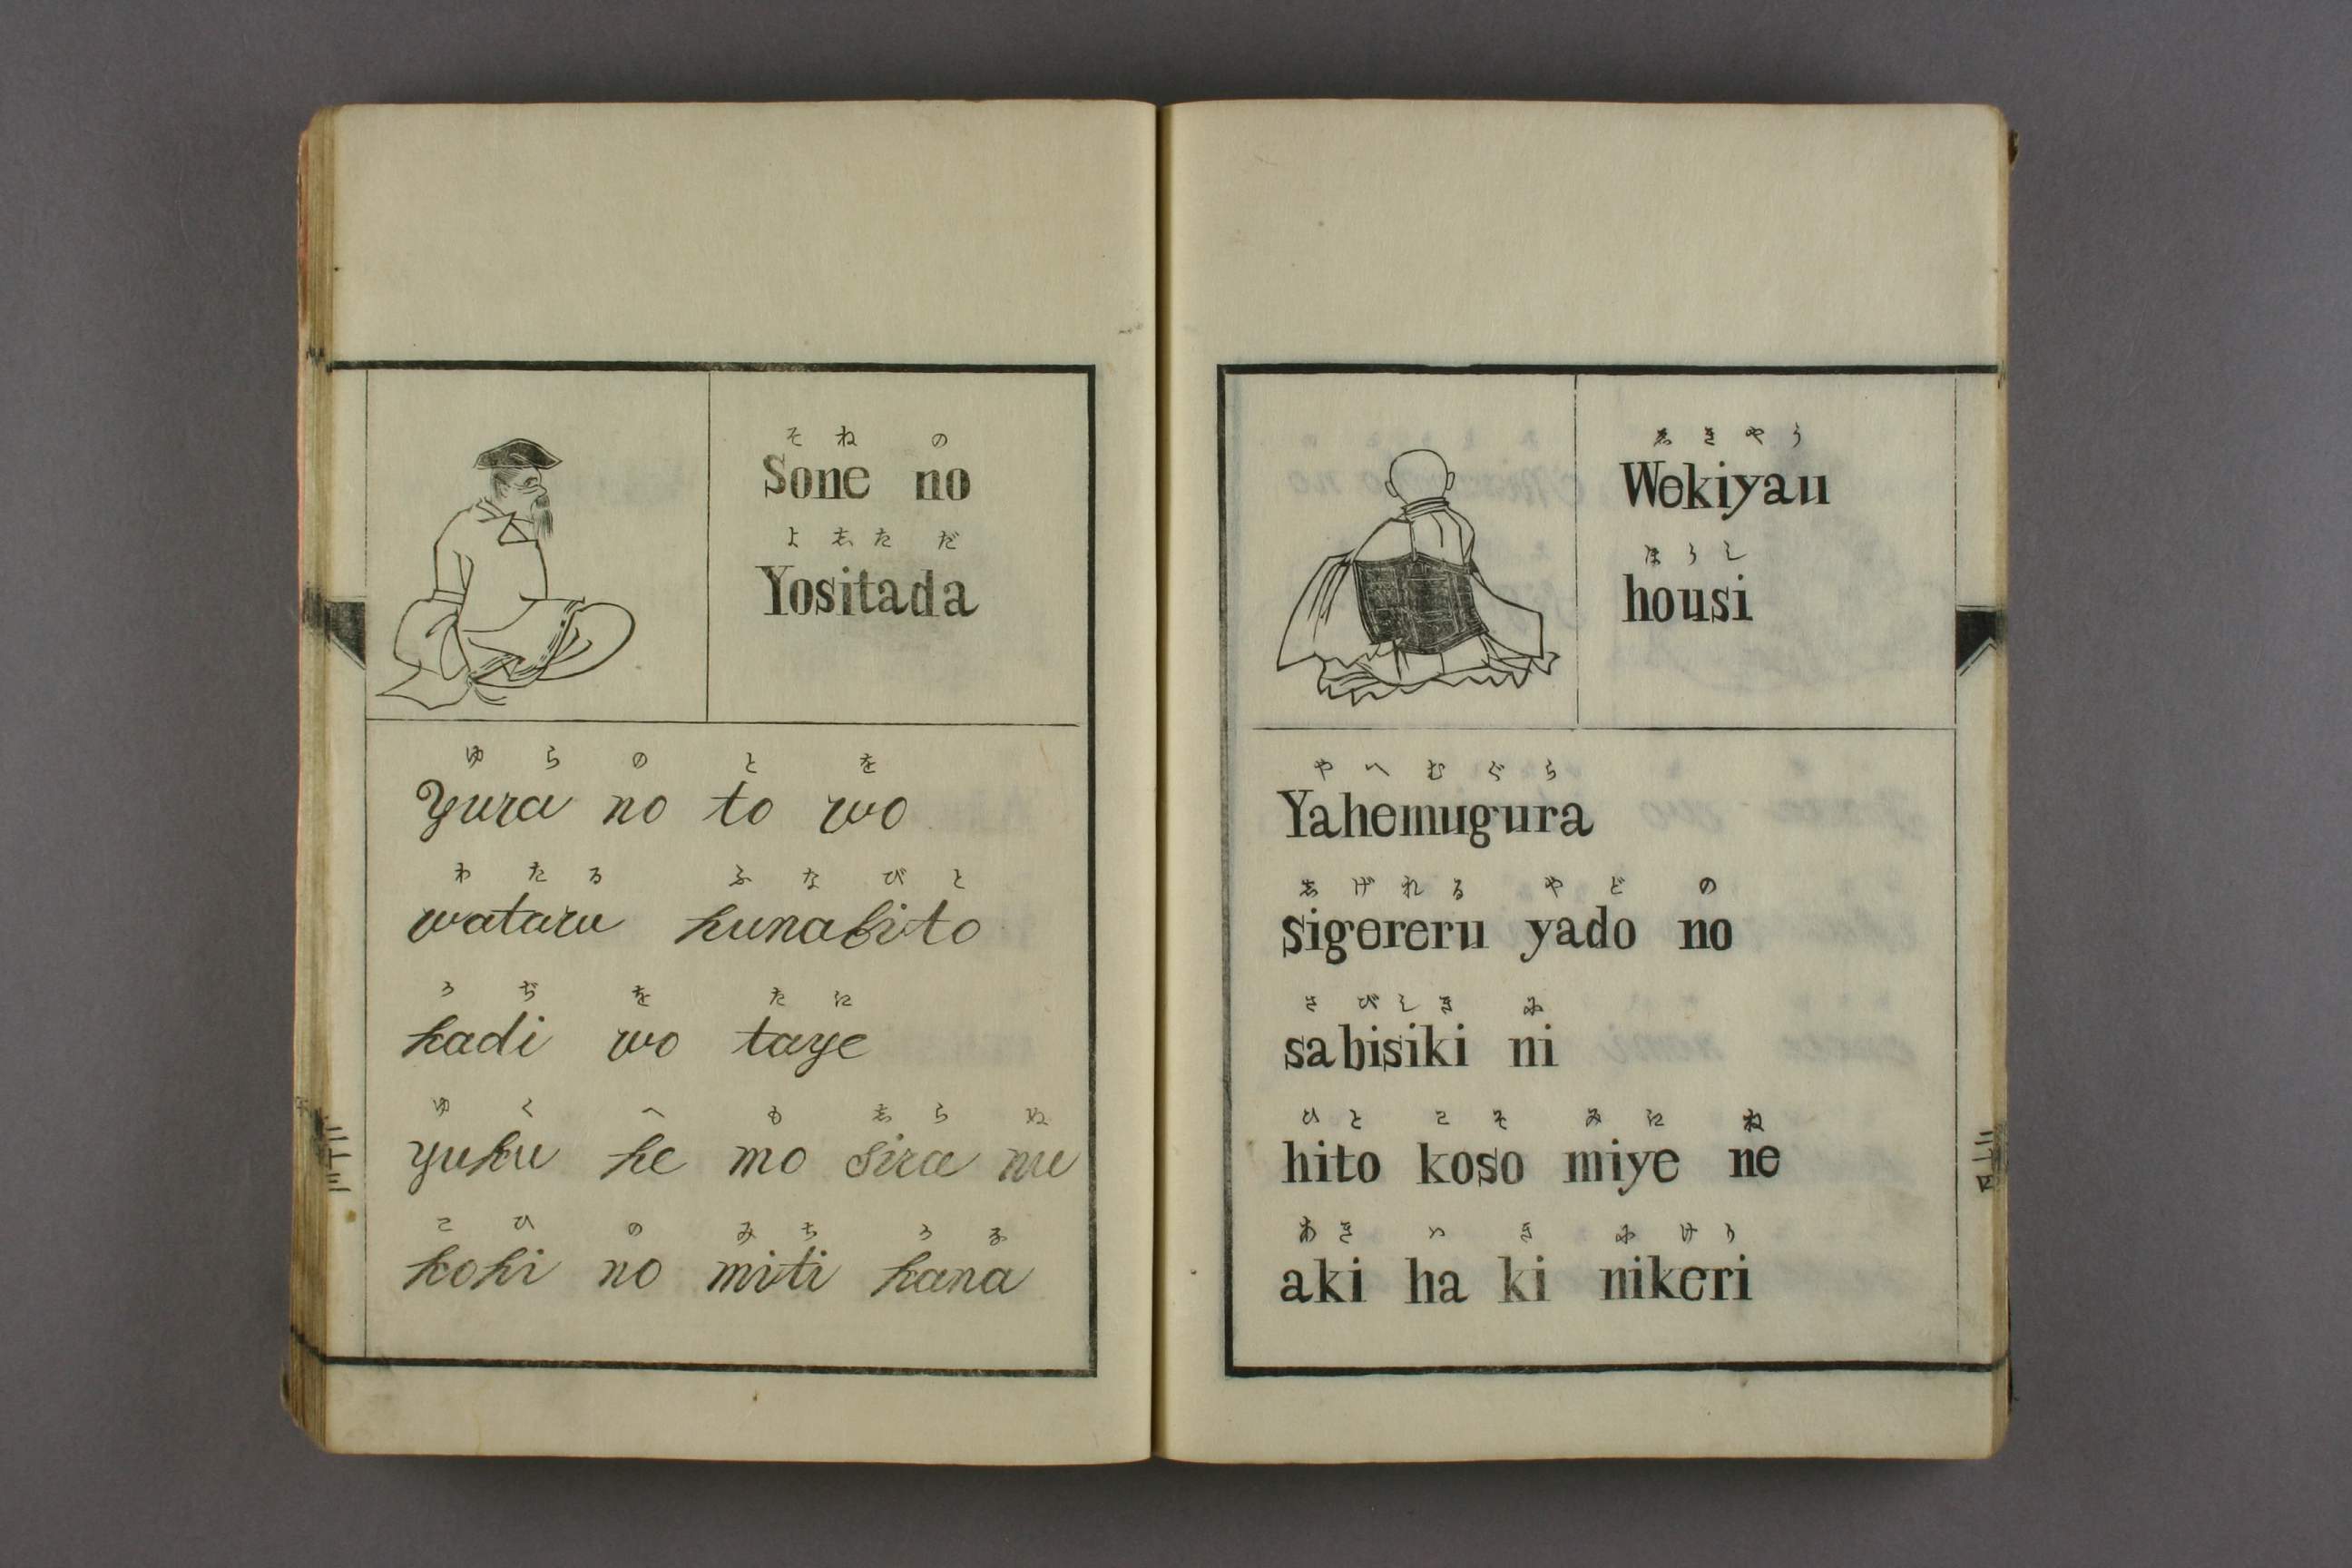 そ ね の
Sone no
よ し た だ
Yositada
ゆ ら の と を
Yura no to wo
わ た る ふ な び と
wataru hunabito
か ぢ を た え
kadi wo taye
ゆ く へ も し ら ぬ
yuku he mo sira nu
こ ひ の み ち か な
kohi no miti kana
三十三
ゑ き や う
Wekiyau
ほ う し
housi
や へ む ぐ ら
Yahemugura
し げ れ る や ど の
sigereru yado no
さ び し き に
sabisiki ni
ひ と こ そ み え ね
hito koso miye ne
あ き ハ き に け り
aki ha ki nikeri
三十四